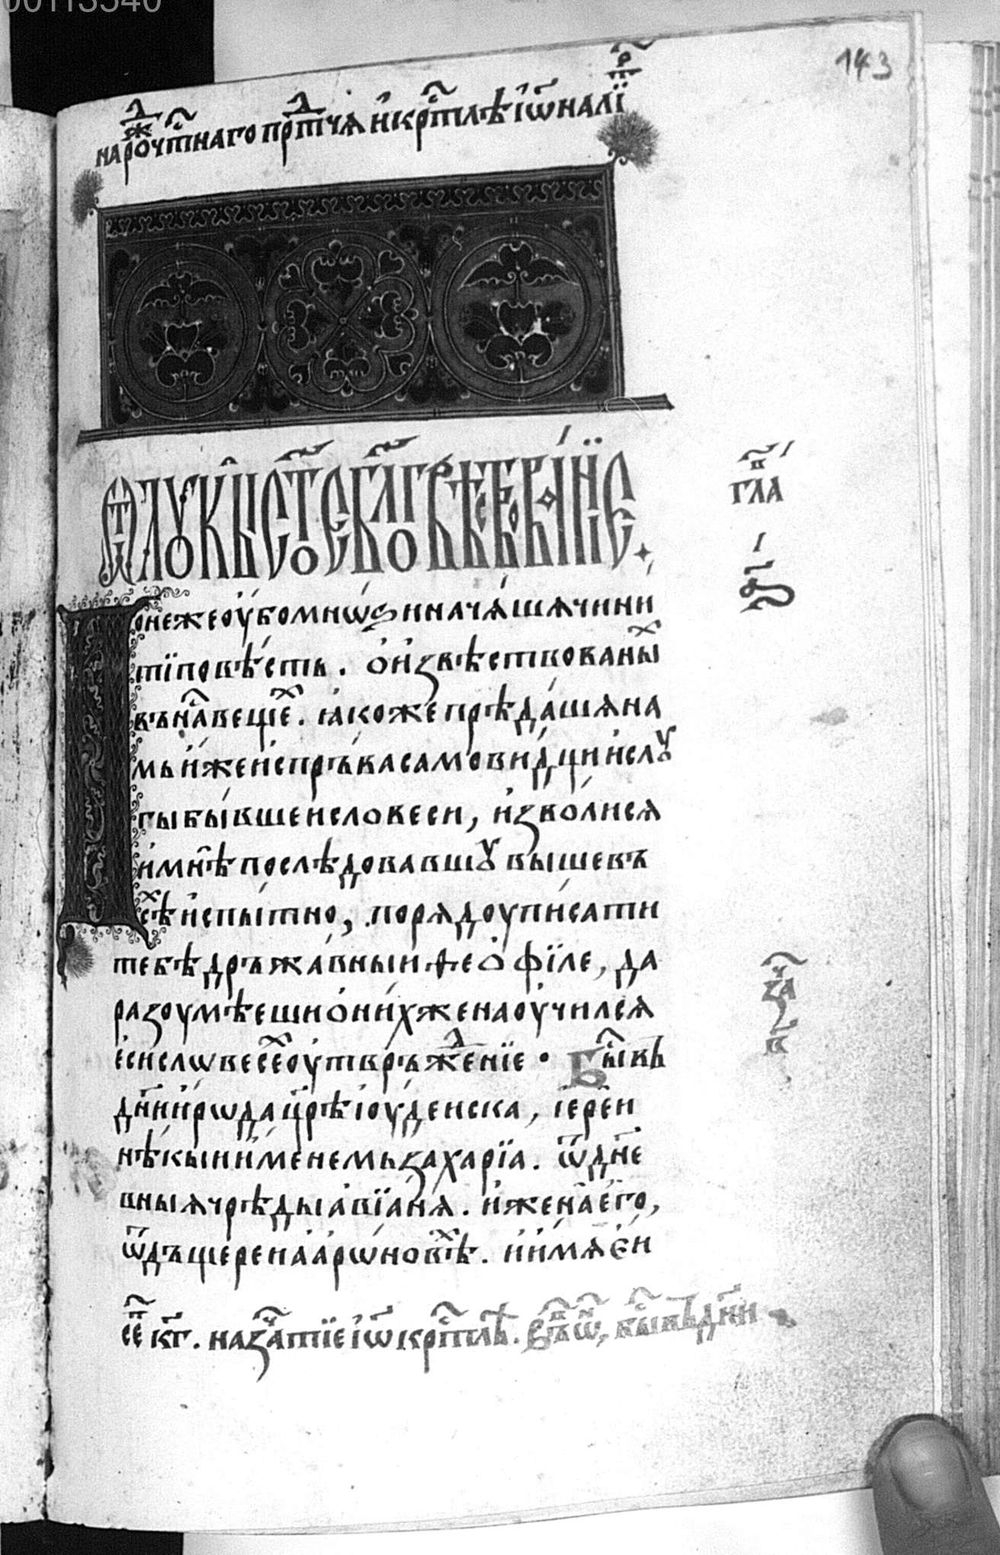 00113540
143
на рожⷣчⷭ҇тнаго прⷣтчѧ и҆ крⷭ҇тлѣ і҆ѡ҆на лиⷮ
ѿ лꙋкы ст҃ое бл҃говѣствованїе
гл҃а
Понеже оу҆бо мнѡѕи начѧшѧ чини
ти повѣсть. ѡ҆ и҆звѣствованыⷯ
въ наⷭ҇ вещеⷯ. ꙗкоже прѣдашѧ на
мь и҆же и҆спръва самовидци и҆ слꙋ
гы бывше и҆ словеси, и҆зволисѧ
и҆ мнѣ послѣдовавшꙋ выше въ
сѣⷯ и҆спытно, порѧдоу писати
тебѣ дръжавныи ѳео҆фїле, да
разоумѣеши ѡ҆ нихже наоучилсѧ
є҆си словесеⷯ оу҆твръжⷣенїе · Быⷭ҇ вь
дн҃и и҆рѡда цр҃ѣ і҆оуденска, і҆ереи
нѣкыи и҆менемь захарїа. ѿ дн҃е
вныѧ чрѣды а҆вїанѧ. и҆ жена е҆го,
ѿ дъщерен а҆арѡновѣⷯ. и҆ и҆мѧ є҆и
заⷱ҇
в҃
сеⷫ҇ к҃г. на заⷱ҇тїе і҆ѡ҆ крⷭ҇тлѣ. въ ѡ҆, быⷭ҇ въ дн҃и